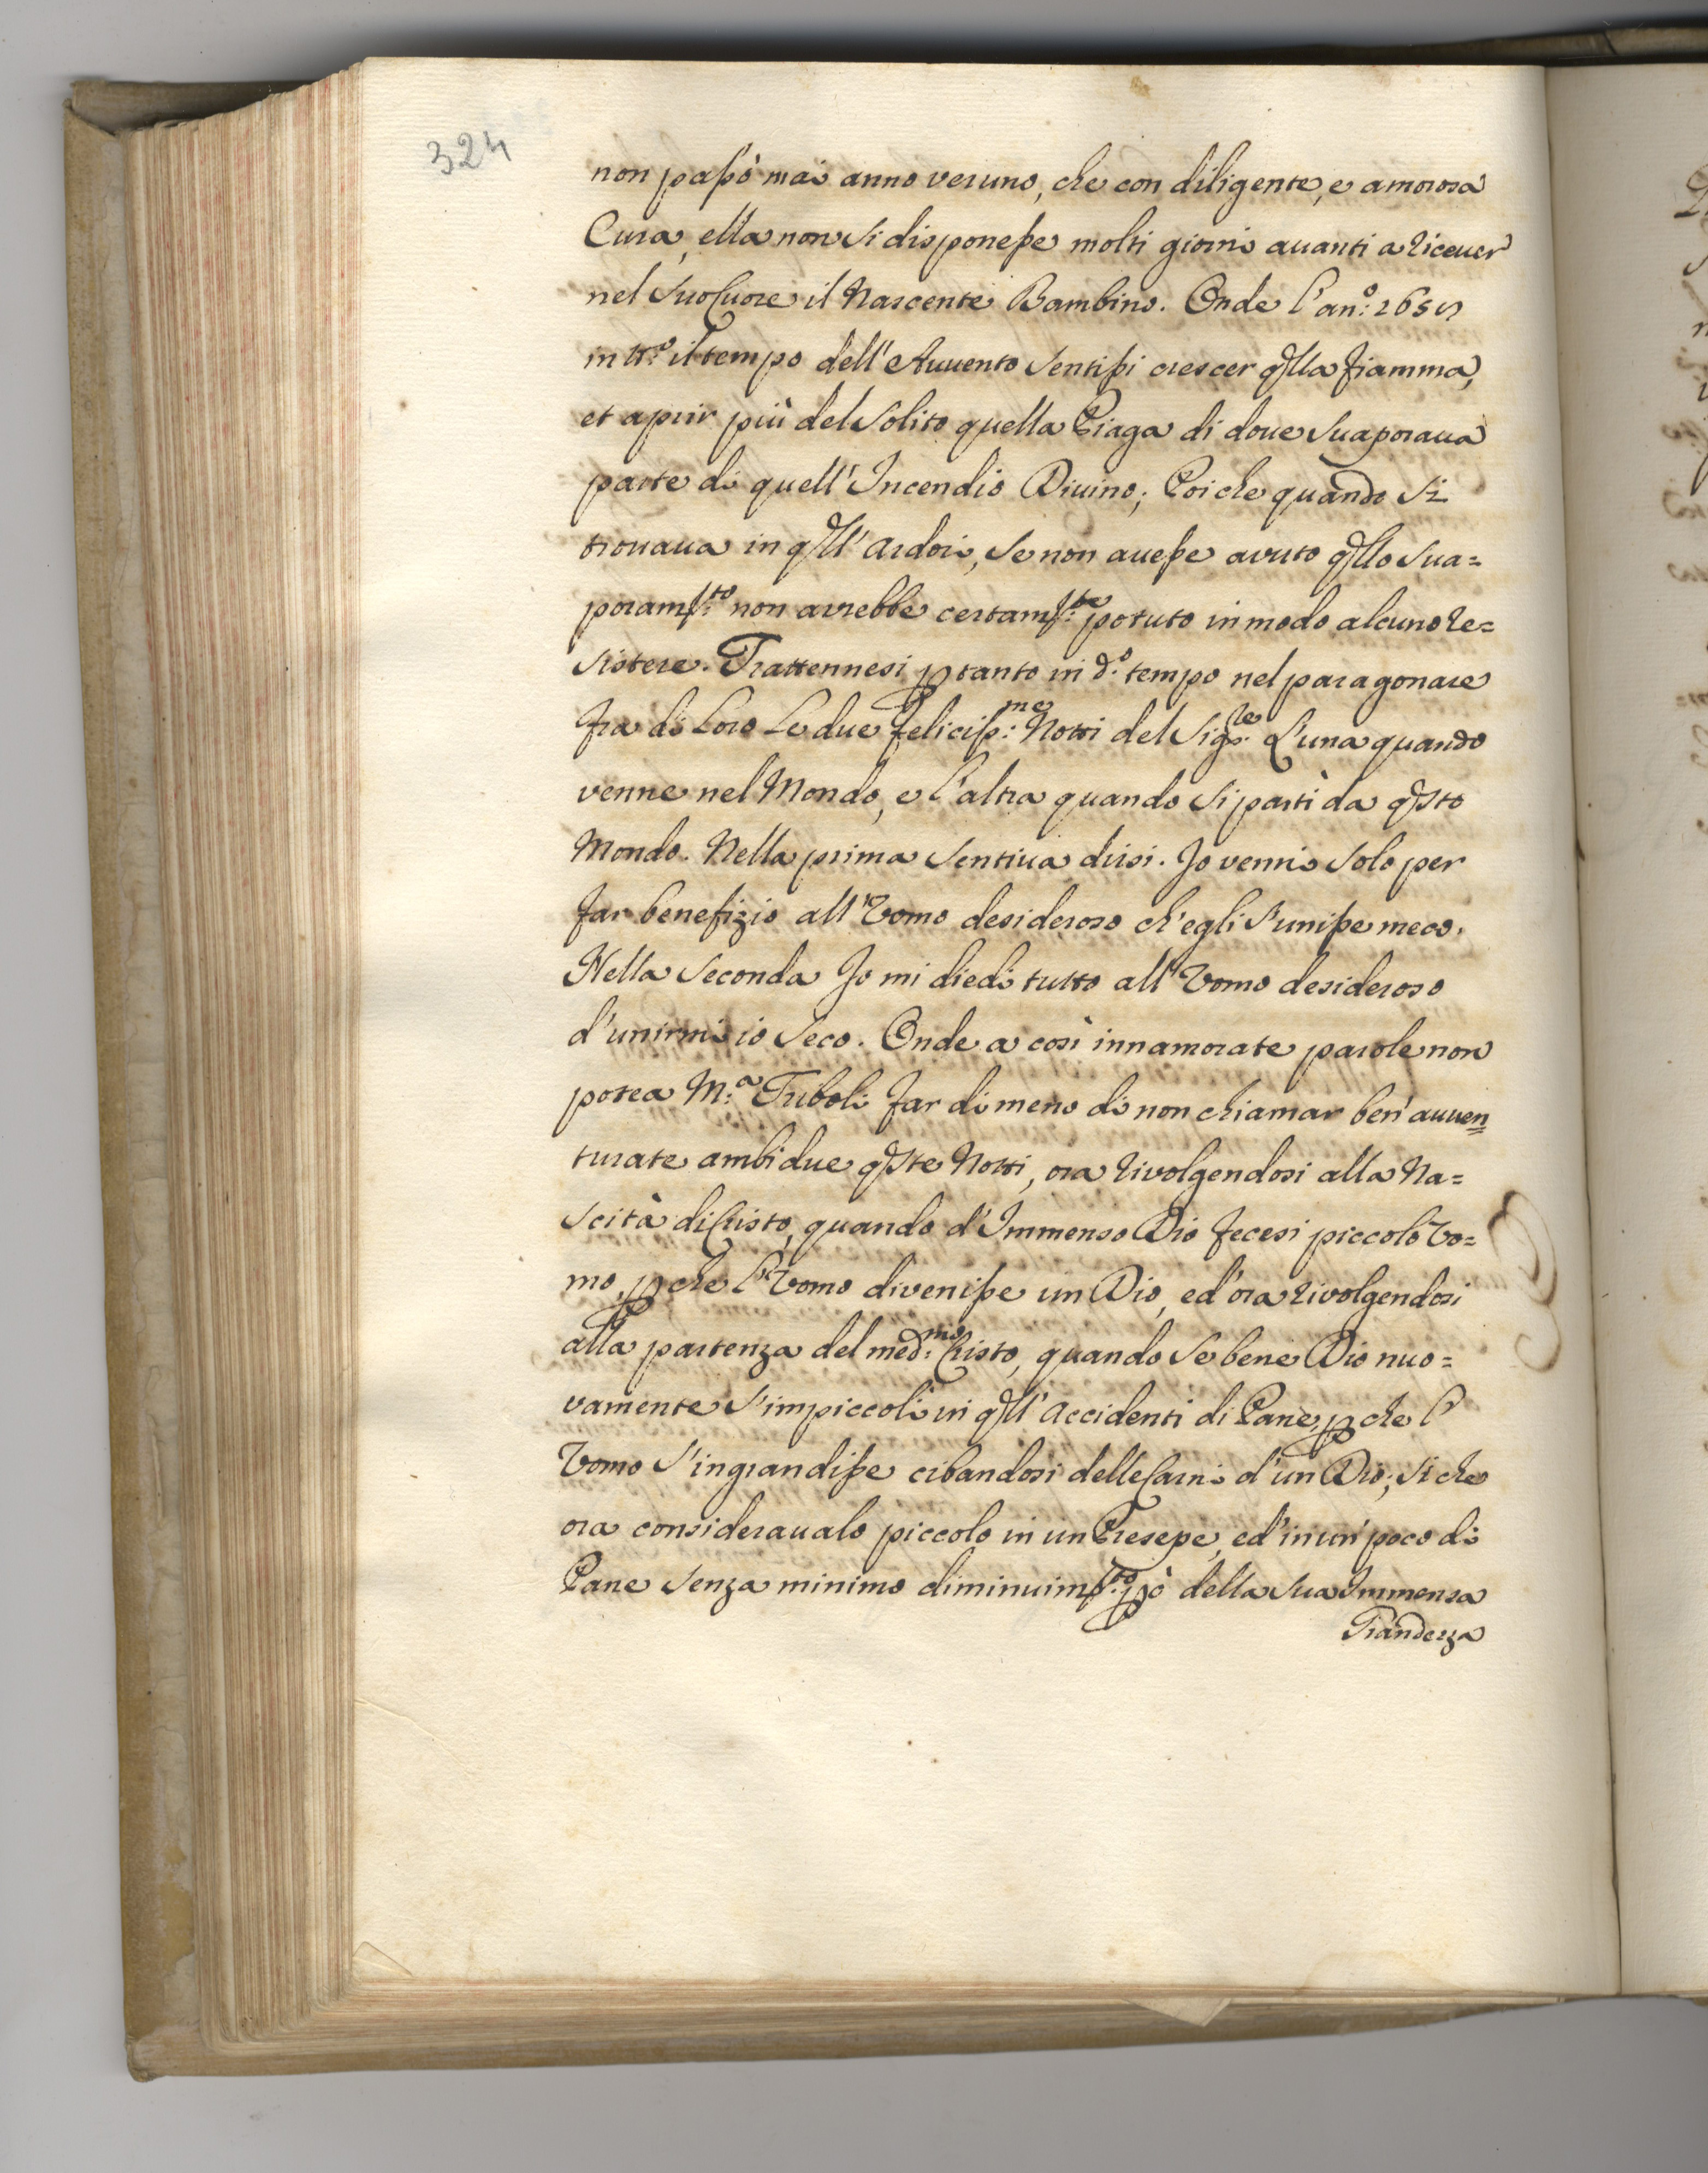 324
non passò mai anno veruno, che con diligente, e amorosa
Cura, ella non si disponesse molti giorni auanti a riceuer
nel suo Cuore il Nascente Bambino. Onde l'an.o: 165
in tt.o il tempo dell'Auuento sentissi crescer qlla fiamma,
et aprir più del solito quella Piaga di doue suaporaua
parte di quell'Incendio Diuino; Poiche quando si
trouaua in qll' ardori, se non auesse avuto qllo sua=
poram:to non avrebbe certam:te potuto in modo alcuno re=
sistere. Trattennesi ptanto in d.o tempo nel paragonare
fra di Loro Le due feliciss:me Notti del Sig.re L'una quando
venne nel Mondo, e l'altra quando si partì da qsto
Mondo. Nella prima sentiua dirsi. Io venni solo per
far benefizio all'Vomo desideroso ch'egli s'unisse meco.
Nella seconda Io mi diedi tutto all'Vomo desideroso
d'unirmi io seco. Onde a così innamorate parole non
potea M:a Triboli far di meno di non chiamar ben'auuen=
turate ambidue qste Notti, ora rivolgendosi alla Na=
scità di Cristo, quando d'Immenso Dio fecesi piccolo Vo=
mo, pche l'Vomo divenisse un Dio, ed'ora rivolgendosi
alla partenza del med:mo Cristo, quando se bene Dio nuo=
vamente s'impiccolì in qll'accidenti di Pane, pche l'
Vomo s'ingrandisse cibandosi delle Carni d'un Dio; si che
ora consideraualo piccolo in un Presepe, ed'in un'poco di
Pane senza minimo diminuim:to pò della sua Immensa
Grandezza